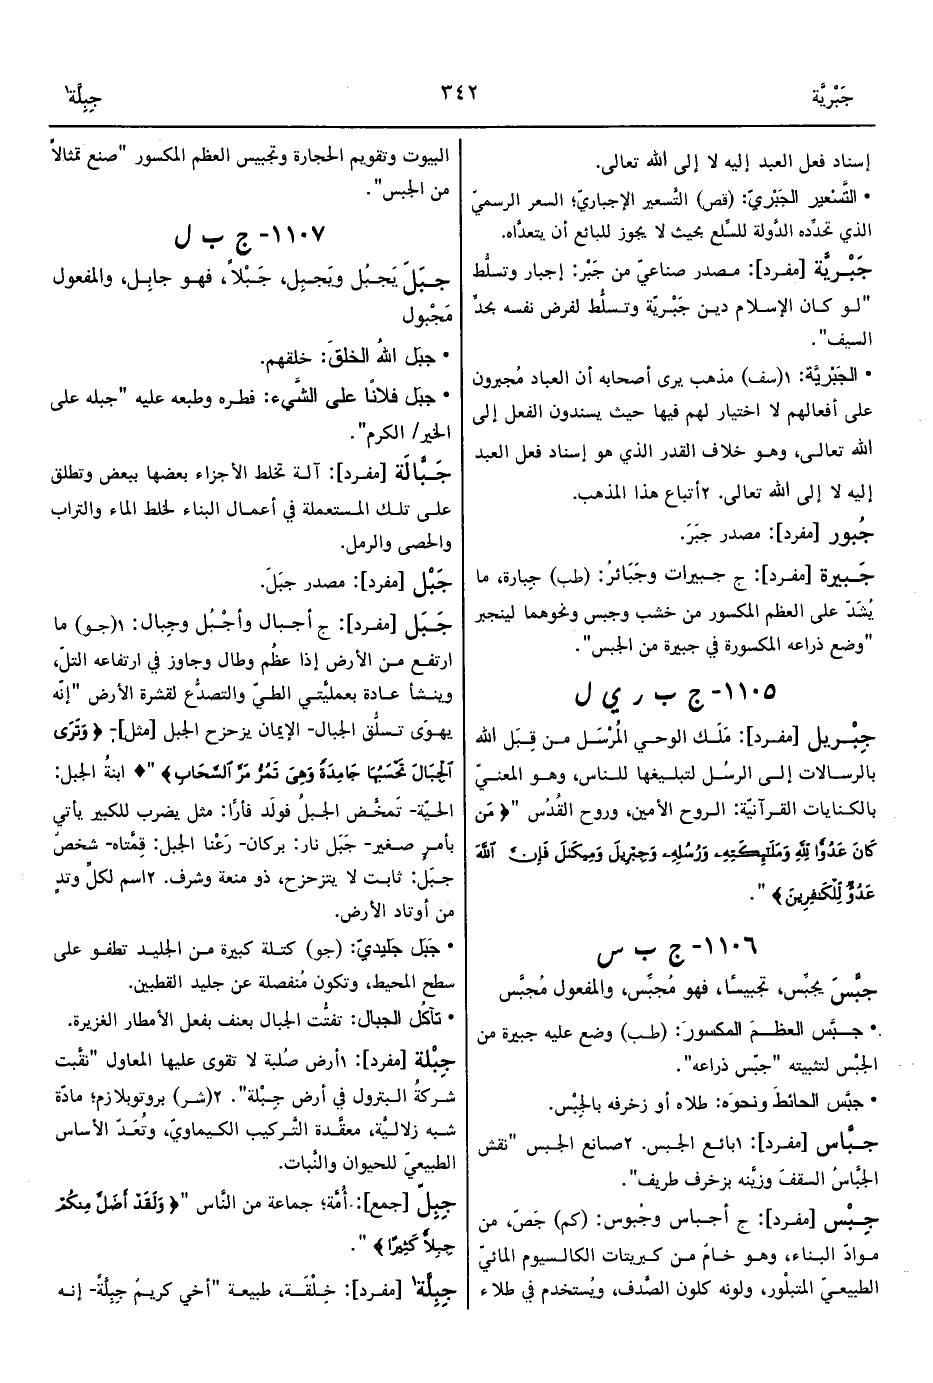 جَبْريَّة
٣٤٢
جِبِلَّة١
إسناد فعل العبد إليه لا إلى الله تعالى.
• التَّسْعير الجَبْريّ: (قص) التَّسعير الإجباريّ؛ السعر الرسميّ
الذي تحدِّده الدَّولة للسِّلع بحيث لا يجوز للبائع أن يتعدَّاه.
جَبْريَّة [مفرد]: مصدر صناعيّ من جَبْر: إجبار وتسلُّط
"لو كان الإسلام دين جَبْريّة وتسلُّط لفرض نفسه بحدِّ
السيف".
• الجَبْريَّة: ١(سف) مذهب يرى أصحابه أن العباد مُجبرون
على أفعالهم لا اختيار لهم فيها حيث يسندون الفعل إلى
الله تعالى، وهو خلاف القدر الذي هو إسناد فعل العبد
إليه لا إلى الله تعالى. ٢أتباع هذا المذهب.
جُبُور [مفرد]: مصدر جبَرَ.
جَبيرة [مفرد]: ج جبيرات وجَبَائرُ: (طب) جِبارة، ما
يُشَدّ على العظم المكسور من خشب وجبس ونحوهما لينجبر
"وضع ذراعه المكسورة في جبيرة من الجبس".
١١٠٥- ج ب ر ي ل
جِبْريل [مفرد]: مَلَك الوحي المُرْسَل من قِبَل الله
بالرسالات إلى الرسُل لتبليغها للناس، وهو المعنيّ
بالكنايات القرآنيّة: الروح الأمين، وروح القُدُس "﴿ مَن
كَانَ عَدُوًّا لِلَّهِ وَمَلَٰٓئِكَتِهِۦ وَرُسُلِهِۦ وَجِبْرِيلَ وَمِيكَىٰلَ فَإِنَّ ٱللَّهَ
عَدُوٌّ لِّلْكَٰفِرِينَ ﴾ ".
١١٠٦- ج ب س
جبَّسَ يجبِّس، تجبيسًا، فهو مُجبِّس، والمفعول مُجبَّس
• جبَّس العظمَ المكسورَ: (طب) وضع عليه جبيرة من
الجبْس لتثبيته "جبّس ذراعه".
• جبَّس الحائطَ ونحوَه: طلاه أو زخرفه بالجِبْس.
جبَّاس [مفرد]: ١بائع الجبس. ٢صانع الجبس "نقش
الجبَّاسُ السقفَ وزيَّنه بزخرف طريف".
جِبْس [مفرد]: ج أجباس وجُبوس: (كم) جَصّ، من
موادّ البناء، وهو خامٌ من كبريتات الكالسيوم المائيّ
الطبيعيّ المتبلْور، ولونه كلون الصَّدف، ويُستخدم في طلاء
البيوت وتقويم الحجارة وتجبيس العظم المكسور "صنع تمثالاً
من الجبس".
١١٠٧- ج ب ل
جبَلَ يَجبُل ويَجبِل، جَبْلاً، فهو جابِل، والمفعول
مَجْبول
• جبَل اللهُ الخلقَ: خلقهم.
• جبَل فلانًا على الشَّيء: فطره وطبعه عليه "جبله على
الخير/ الكرم".
جَبَّالَة [مفرد]: آلة تخلط الأجزاء بعضها ببعض وتطلق
على تلك المستعملة في أعمال البناء لخلط الماء والتراب
والحصى والرمل.
جَبْل [مفرد]: مصدر جبَلَ.
جَبَل [مفرد]: ج أجبال وأجْبُل وجِبال: ١(جو) ما
ارتفع من الأرض إذا عظُم وطال وجاوز في ارتفاعه التلّ،
وينشأ عادة بعمليَّتي الطيّ والتصدُّع لقشرة الأرض "إنّه
يهوَى تسلُّق الجبال- الإيمان يزحزح الجبل [مثل]- ﴿ وَتَرَى
ٱلْجِبَالَ تَحْسَبُهَا جَامِدَةً وَهِىَ تَمُرُّ مَرَّ ٱلسَّحَابِ ﴾ "♦ ابنةُ الجبل:
الحيّة- تَمخَّض الجبلُ فولَد فأرًا: مثل يضرب للكبير يأتي
بأمرٍ صغير- جَبَل نار: بركان- رَعْنا الجبل: قِمَّتاه- شخصٌ
جبَل: ثابت لا يتزحزح، ذو منعة وشرف. ٢اسم لكلِّ وتدٍ
من أوتاد الأرض.
• جَبَل جليديّ: (جو) كتلة كبيرة من الجليد تطفو على
سطح المحيط، وتكون مُنفصلة عن جليد القطبين.
• تآكُل الجبال: تفتُّت الجبال بعنف بفعل الأمطار الغزيرة.
جِبْلة [مفرد]: ١أرض صُلبة لا تقوى عليها المعاول "نقَّبت
شركةُ البترول في أرض جِبْلة". ٢(شر) بروتوبلازم؛ مادّة
شبه زلاليَّة، معقَّدة التَّركيب الكيماويّ، وتُعَدّ الأساس
الطبيعيّ للحيوان والنَّبات.
جِبِلّ [جمع]: أُمَّة؛ جماعة من النَّاس "﴿ وَلَقَدْ أَضَلَّ مِنكُمْ
جِبِلاًّ كَثِيرًا ﴾ ".
جِبِلَّة١ [مفرد]: خِلْقَة، طبيعة "أخي كريمُ جِبِلَّةً- إنه